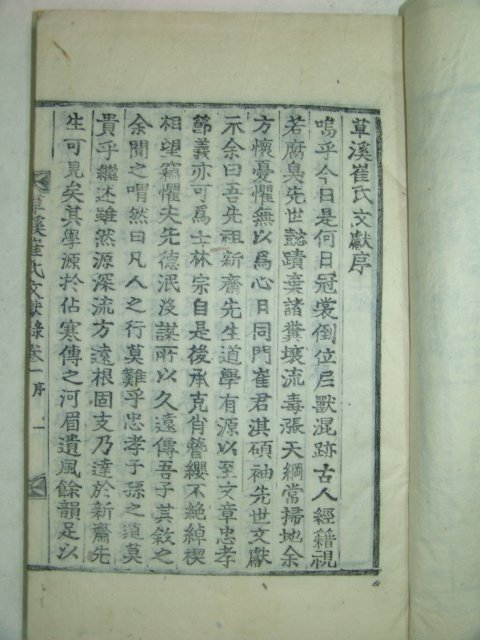 草溪崔氏文獻序
嗚乎今日是何日冠裳倒位尼獸混跡古人經籍視
若腐臭先世懿蹟棄諸糞壤流毒漲天綱常掃地余
方懷憂懼無以爲心日同門崔君淇碩袖先世文獻
示余曰吾先祖新齋先生道學有源以至文章忠孝
節義亦可爲士林宗自是後承克肖簪纓不絶綽楔
相望竊懼夫先德泯沒謀所以久遠傳吾子其敘之
余聞之喟然曰凡人之行莫難乎忠孝子孫之道莫
貴乎繼述雖然源深流方遠根固支乃達於新齋先
生可見矣其學源於佔寒傳之河眉遺風餘韻足以
草溪崔氏文獻錄 卷一 序 一